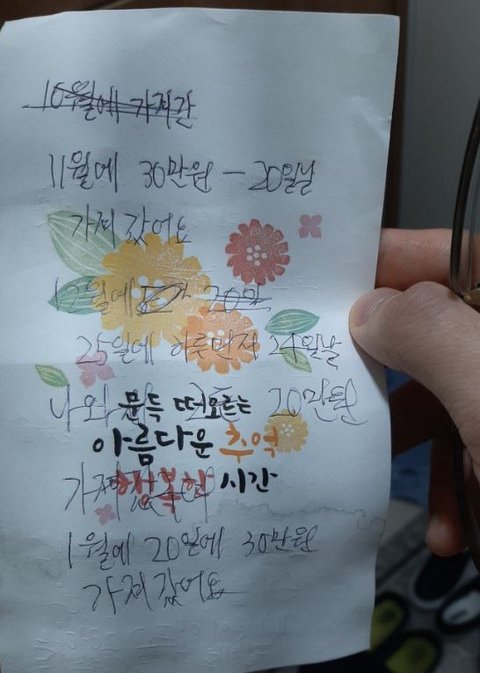 10월에 가져간
11월에 30만원 - 20일날
가져 갔어요
12월에 20일
25일에 하루먼저 24일날
나와 20만원
문득 떠오르는
아름다운 추억
행복한 시간
가져
1월에 20일에 30만원
가져 갔어요